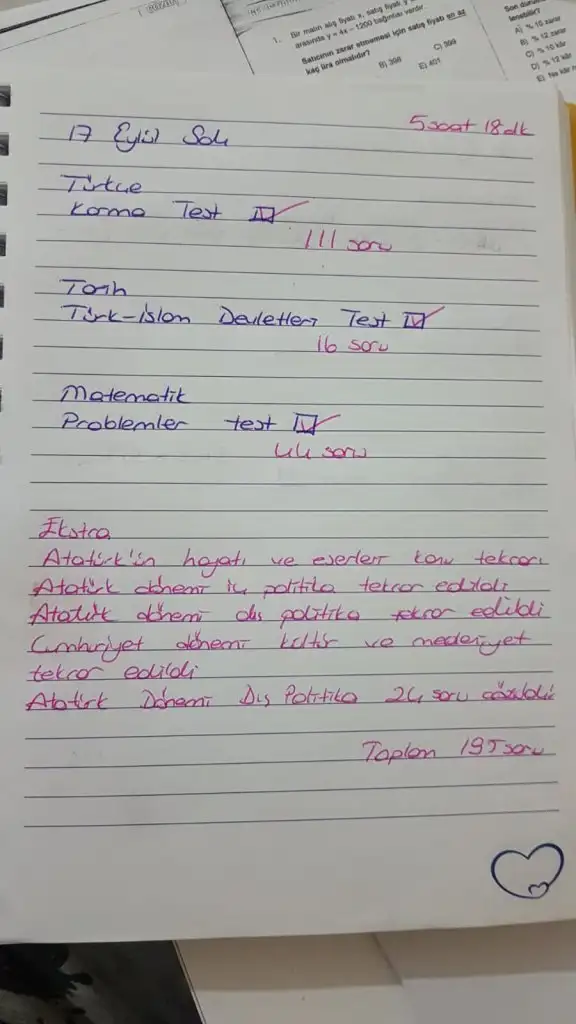 1. Bir malın alış fiyatı x, satış fiyatı y
arasında y = 4x – 1200 bağıntısı vardır.
Satıcının zarar etmemesi için satış fiyatı en az
kaç lira olmalıdır?
B) 398
C) 399
E) 401
A) % 10 zarar
B) % 12 zarar
C) % 10 kâr
D) % 12 kâr
E) Ne kâr
17 Eylül Salı
5 saat 18 dk
Türkçe
Karma Test
111 soru
Tarih
Türk-İslam Devletleri Test
16 soru
Matematik
Problemler test
44 soru
Ekstra
Atatürk'ün hayatı ve eserleri konu tekrarı
Atatürk dönemi iç politika tekrar edildi
Atatürk dönemi dış politika tekrar edildi
Cumhuriyet dönemi kültür ve medeniyet
tekrar edildi
Atatürk Dönemi Dış Politika 24 soru çözüldü
Toplam 195 soru